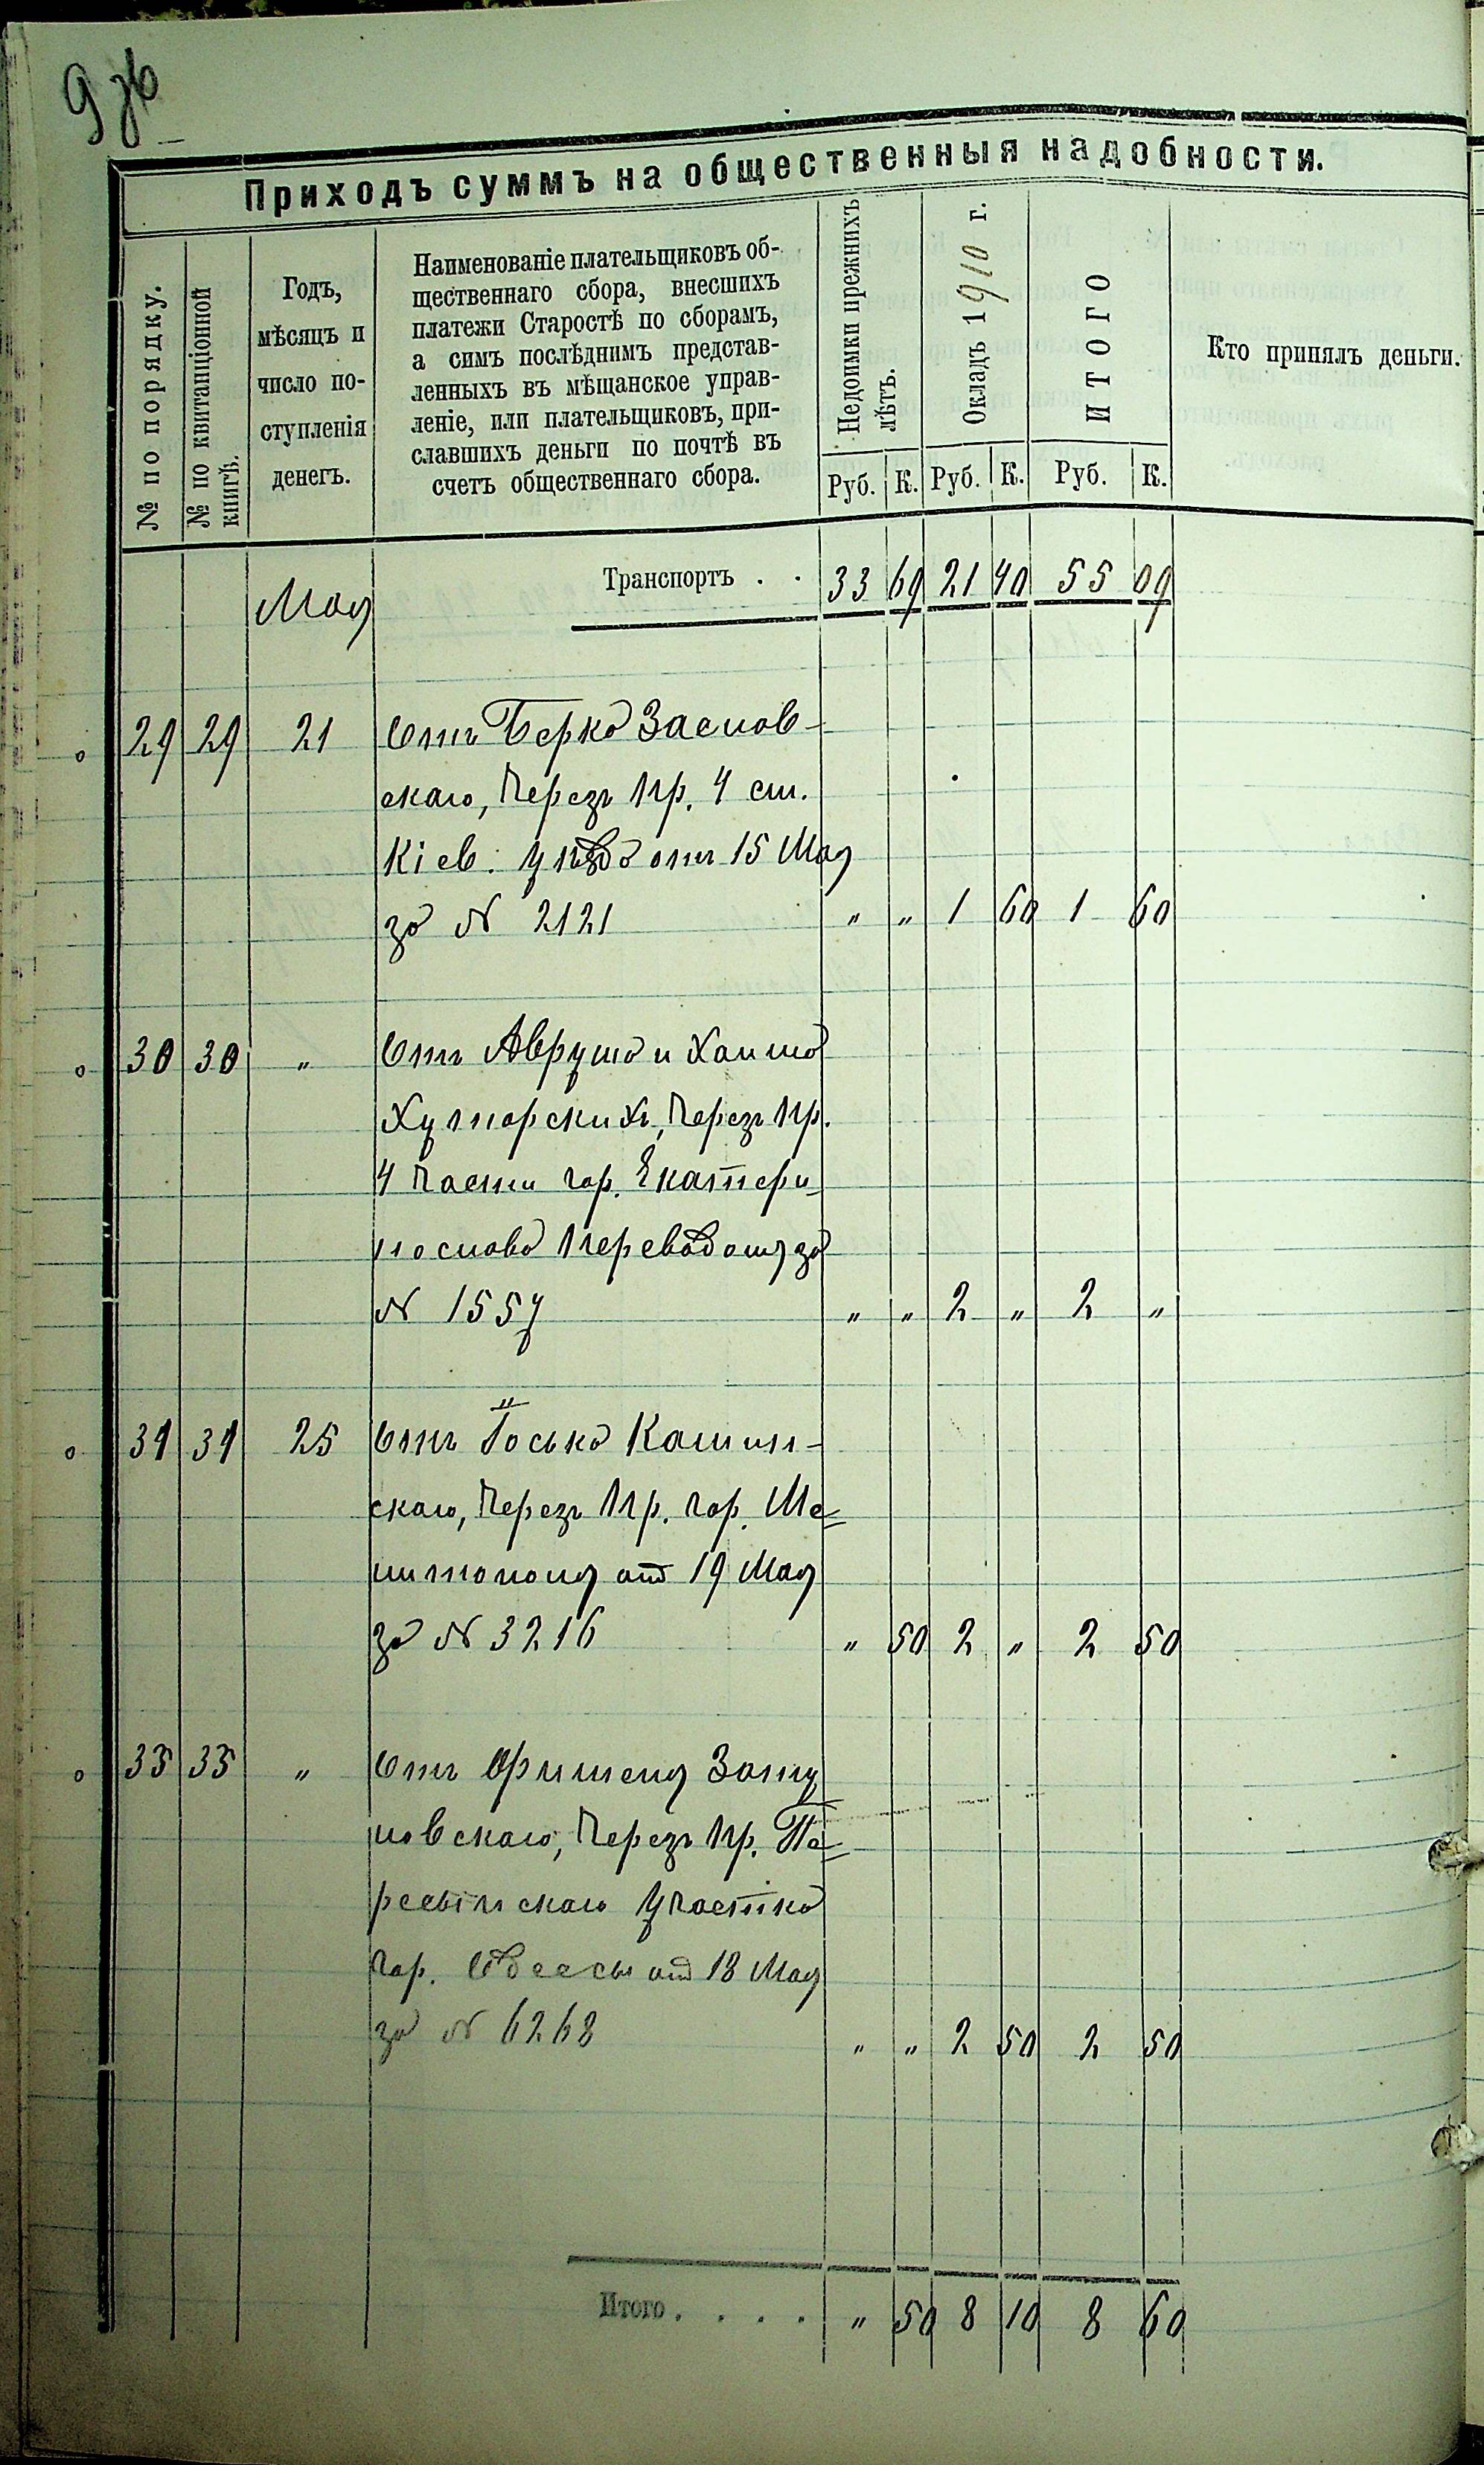 9 зв
Приходъ суммъ на общественныя надобности.
№ по порядку.
№ по квитанціонной книгѣ.
Годъ,
мѣсяцъ и
число по-
ступленія
денегъ.
Наименованіе плательщиковъ об-
щественнаго сбора, внесшихъ
платежи Старостѣ по сборамъ,
а симъ послѣднимъ представ-
ленныхъ въ мѣщанское управ-
леніе, или плательщиковъ, при-
славшихъ деньги по почтѣ въ
счетъ общественнаго сбора.
Недоимки прежнихъ лѣтъ.
Окладъ 1910 г.
ИТОГО
Кто принялъ деньги.
Руб. К. Руб. К. Руб. К.
Мая Транспортъ . . 33 69 21 40 55 09
29 29 21 Отъ Берка Заслов-
скаго, Черезъ Пр. 4 ст.
Кіев. уѣзда отъ 15 Мая
за № 2121 " " 1 60 1 60
30 30 " Отъ Аврума и Хаима
Хуторскихъ, Черезъ Пр.
4 Части гор. Екатери-
нослава переводому за
№ 1557 " " 2 " 2 "
31 31 25 Отъ Госька Камин-
скаго, Черезъ Пр. гор. Ме=
литополя отъ 19 Мая
за № 3216 " 50 2 " 2 50
33 33 " Отъ Фишеля
новскаго, Черезъ Пр. Пе=
ресыпскаго Участка
гор. Одессы отъ 18 Мая
за № 6268 " " 2 50 2 50
Итого . . . . " 50 8 10 8 60